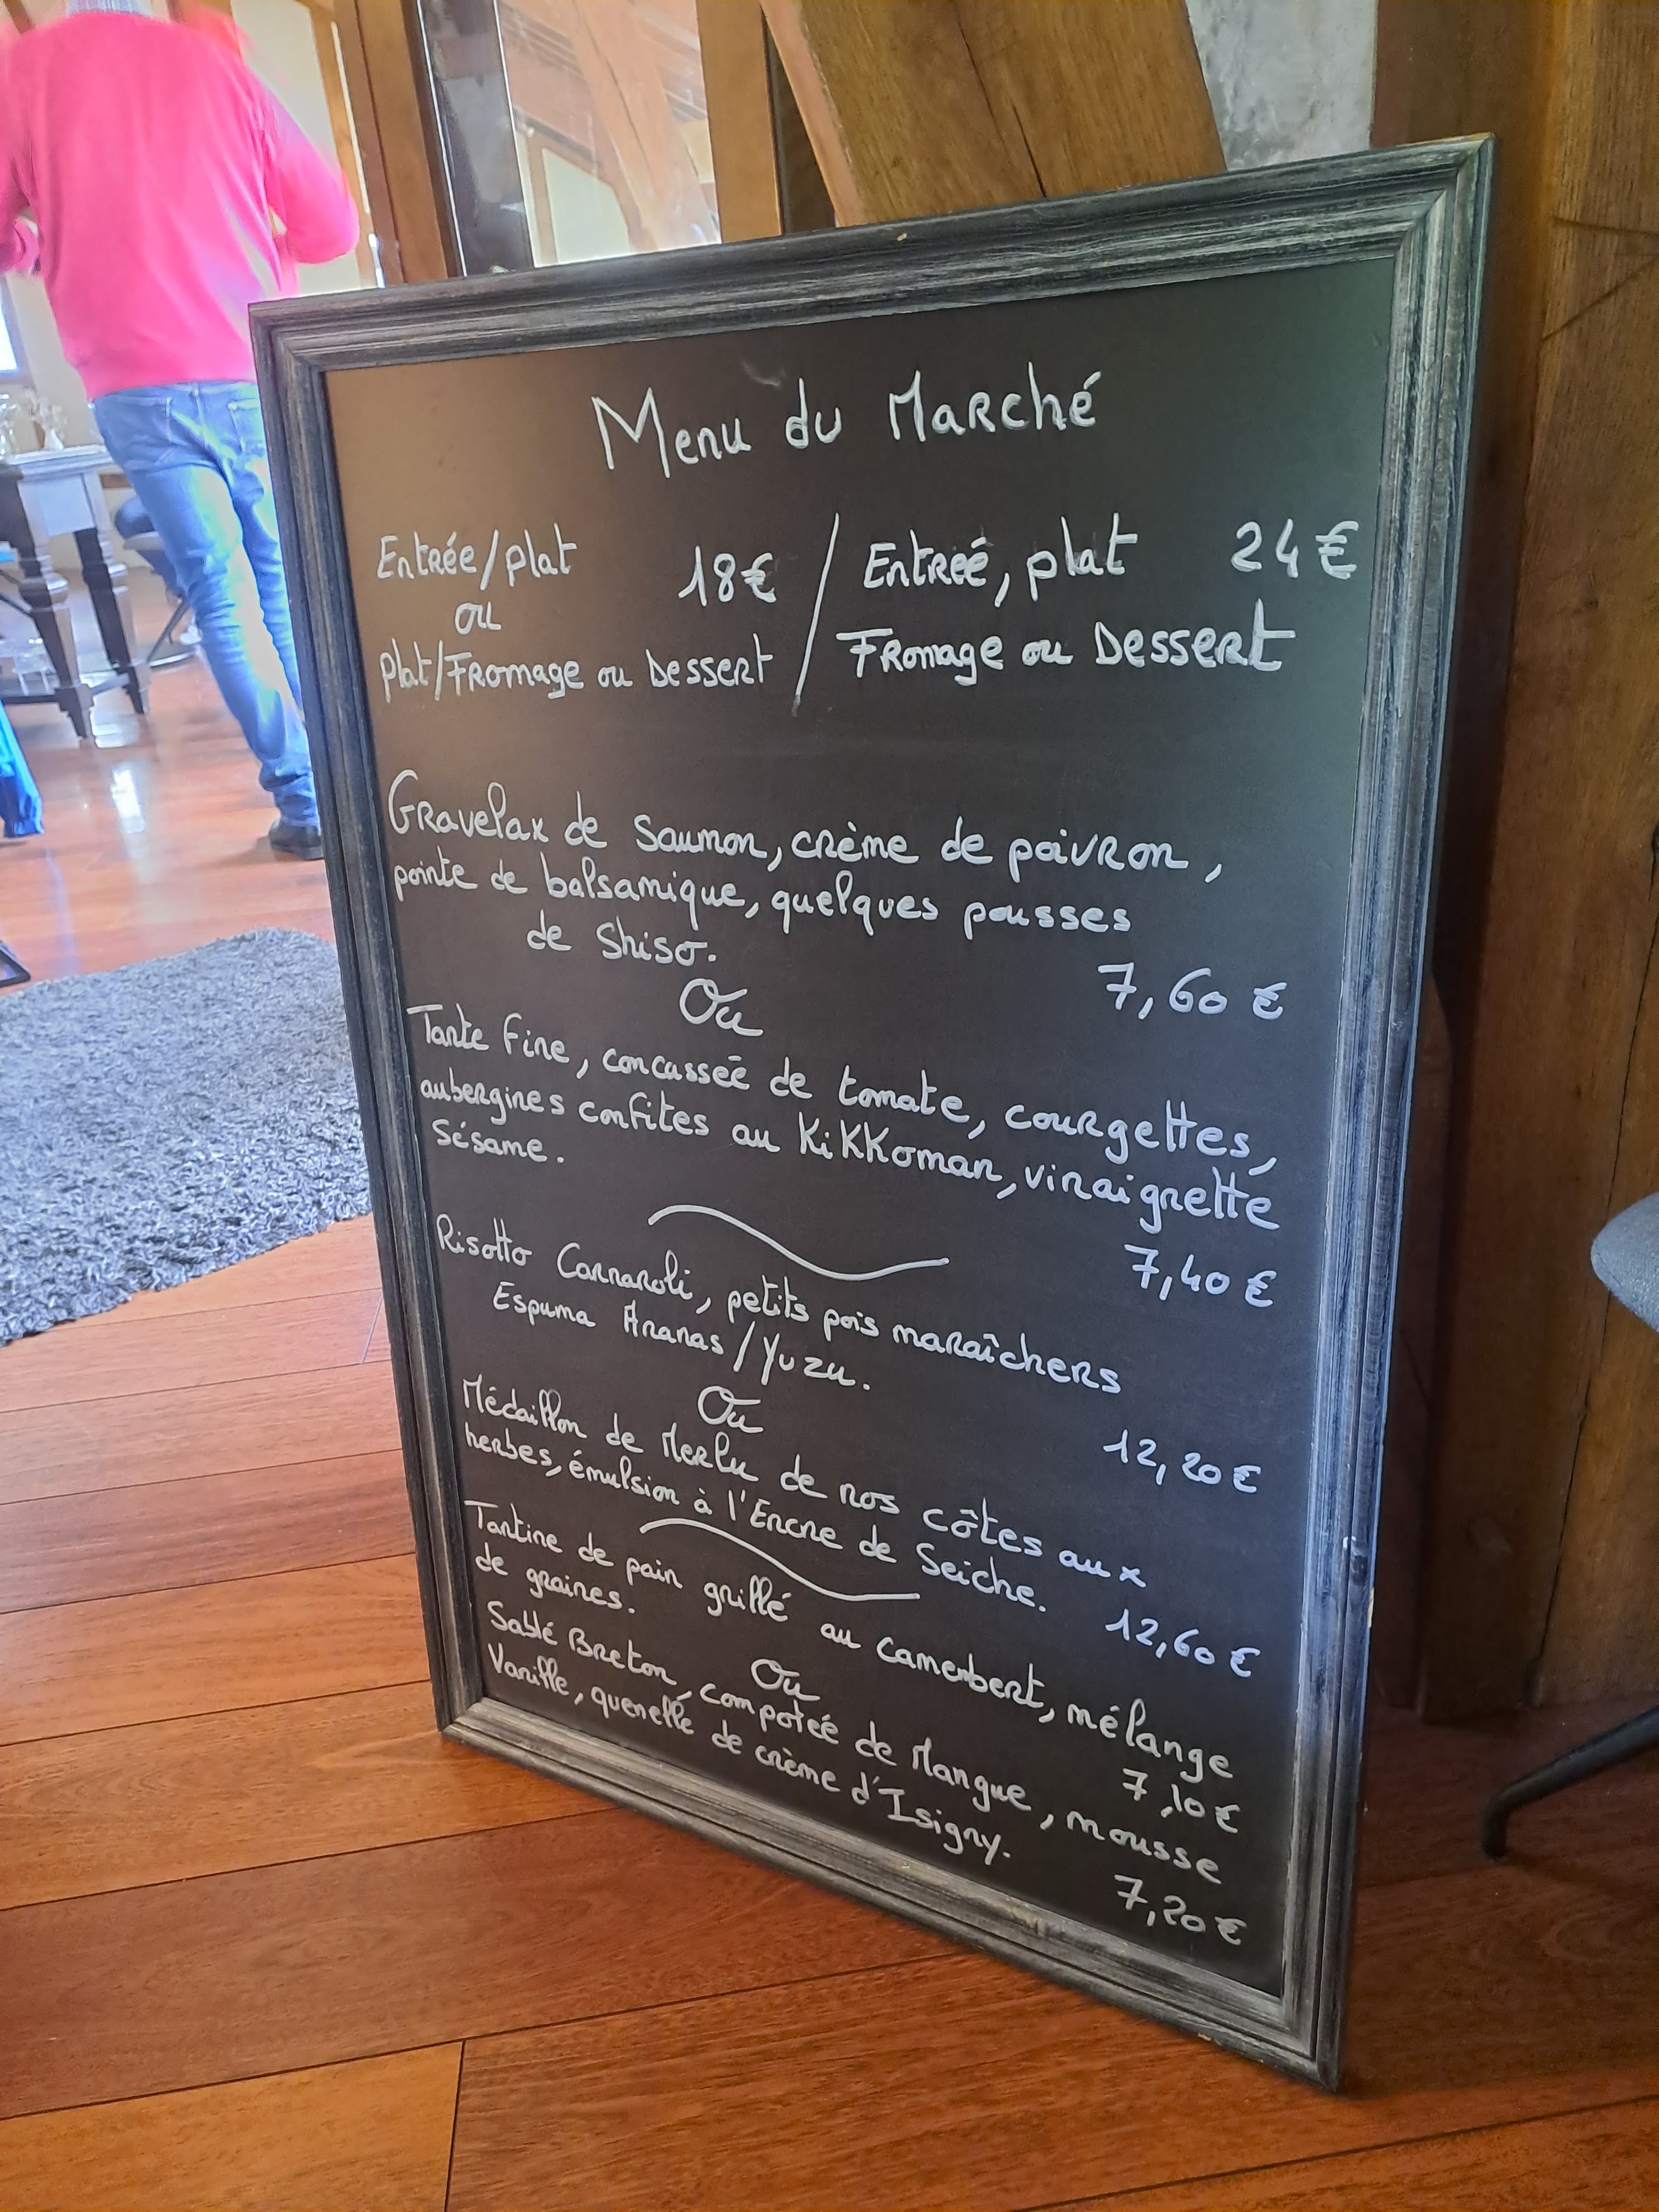 Menu du Marché
Entrée/plat 18€ / Entreé, plat 24€
ou
plat/Fromage ou Dessert / Fromage ou Dessert
Gravelax de Saumon, crème de poivron,
pointe de balsamique, quelques pousses
de Shiso.
7,60 €
Ou
Tarte Fine, concasseé de tomate, courgettes,
aubergines confites au KiKKoman, vinaigrette
Sésame.
7,40 €
Risotto Carnaroli, petits pois maraîchers
Espuma Ananas/Yuzu.
12,20 €
Ou
Médaillon de Merlu de nos côtes aux
herbes, émulsion à l'Encre de Seiche.
12,60 €
Tartine de pain grillé au camembert, mélange
de graines.
7,10 €
Ou
Sablé Breton, compoteé de Mangue, mousse
Vanille, quenelle de crème d'Isigny.
7,20 €